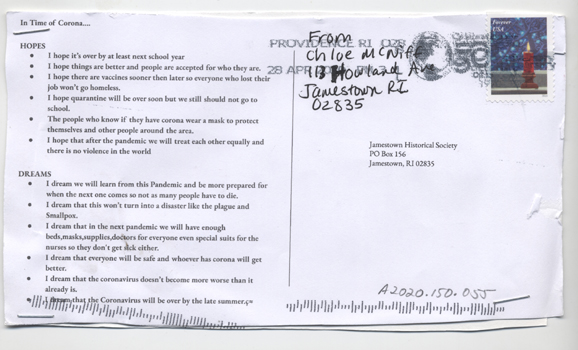 In Time of Corona....
HOPES
• I hope it's over by at least next school year
• I hope things are better and people are accepted for who they are.
• I hope there are vaccines sooner then later so everyone who lost their
job won't go homeless.
• I hope quarantine will be over soon but we still should not go to
school.
• The people who know if they have corona wear a mask to protect
themselves and other people around the area.
• I hope that after the pandemic we will treat each other equally and
there is no violence in the world
DREAMS
• I dream we will learn from this Pandemic and be more prepared for
when the next one comes so not as many people have to die.
• I dream that this won't turn into a disaster like the plague and
Smallpox.
• I dream that in the next pandemic we will have enough
beds,masks,supplies,doctors for everyone even special suits for the
nurses so they don't get sick either.
• I dream that everyone will be safe and whoever has corona will get
better.
• I dream that the coronavirus doesn't become more worse than it
already is.
• I dream that the Coronavirus will be over by the late summer.
From
Chloe McNiff
Howland Ave
Jamestown RI
02835
PROVIDENCE RI 028
28 APR
Forever
USA
Jamestown Historical Society
PO Box 156
Jamestown, RI 02835
A2020.150.055